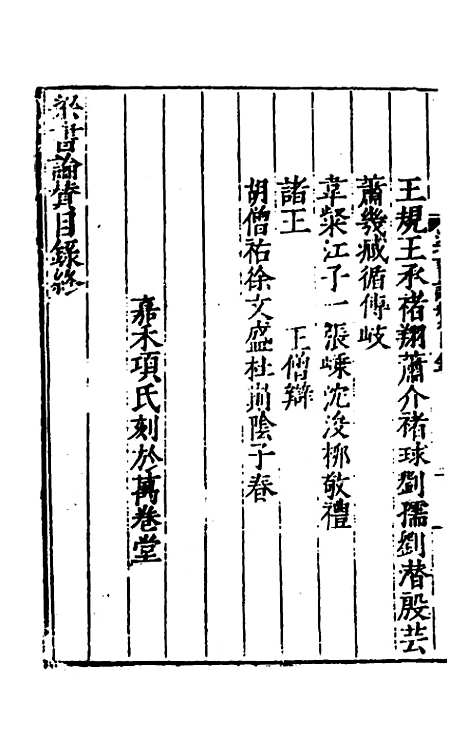 王規王承褚翔蕭介褚球劉孺劉潛殷芸
蕭幾臧循傅岐
韋粲江子一張嵊沈浚柳敬禮
諸王　王僧辯
胡僧祐徐文盛杜崱陰子春
嘉禾項氏刻於萬卷堂
梁書論贊目錄終